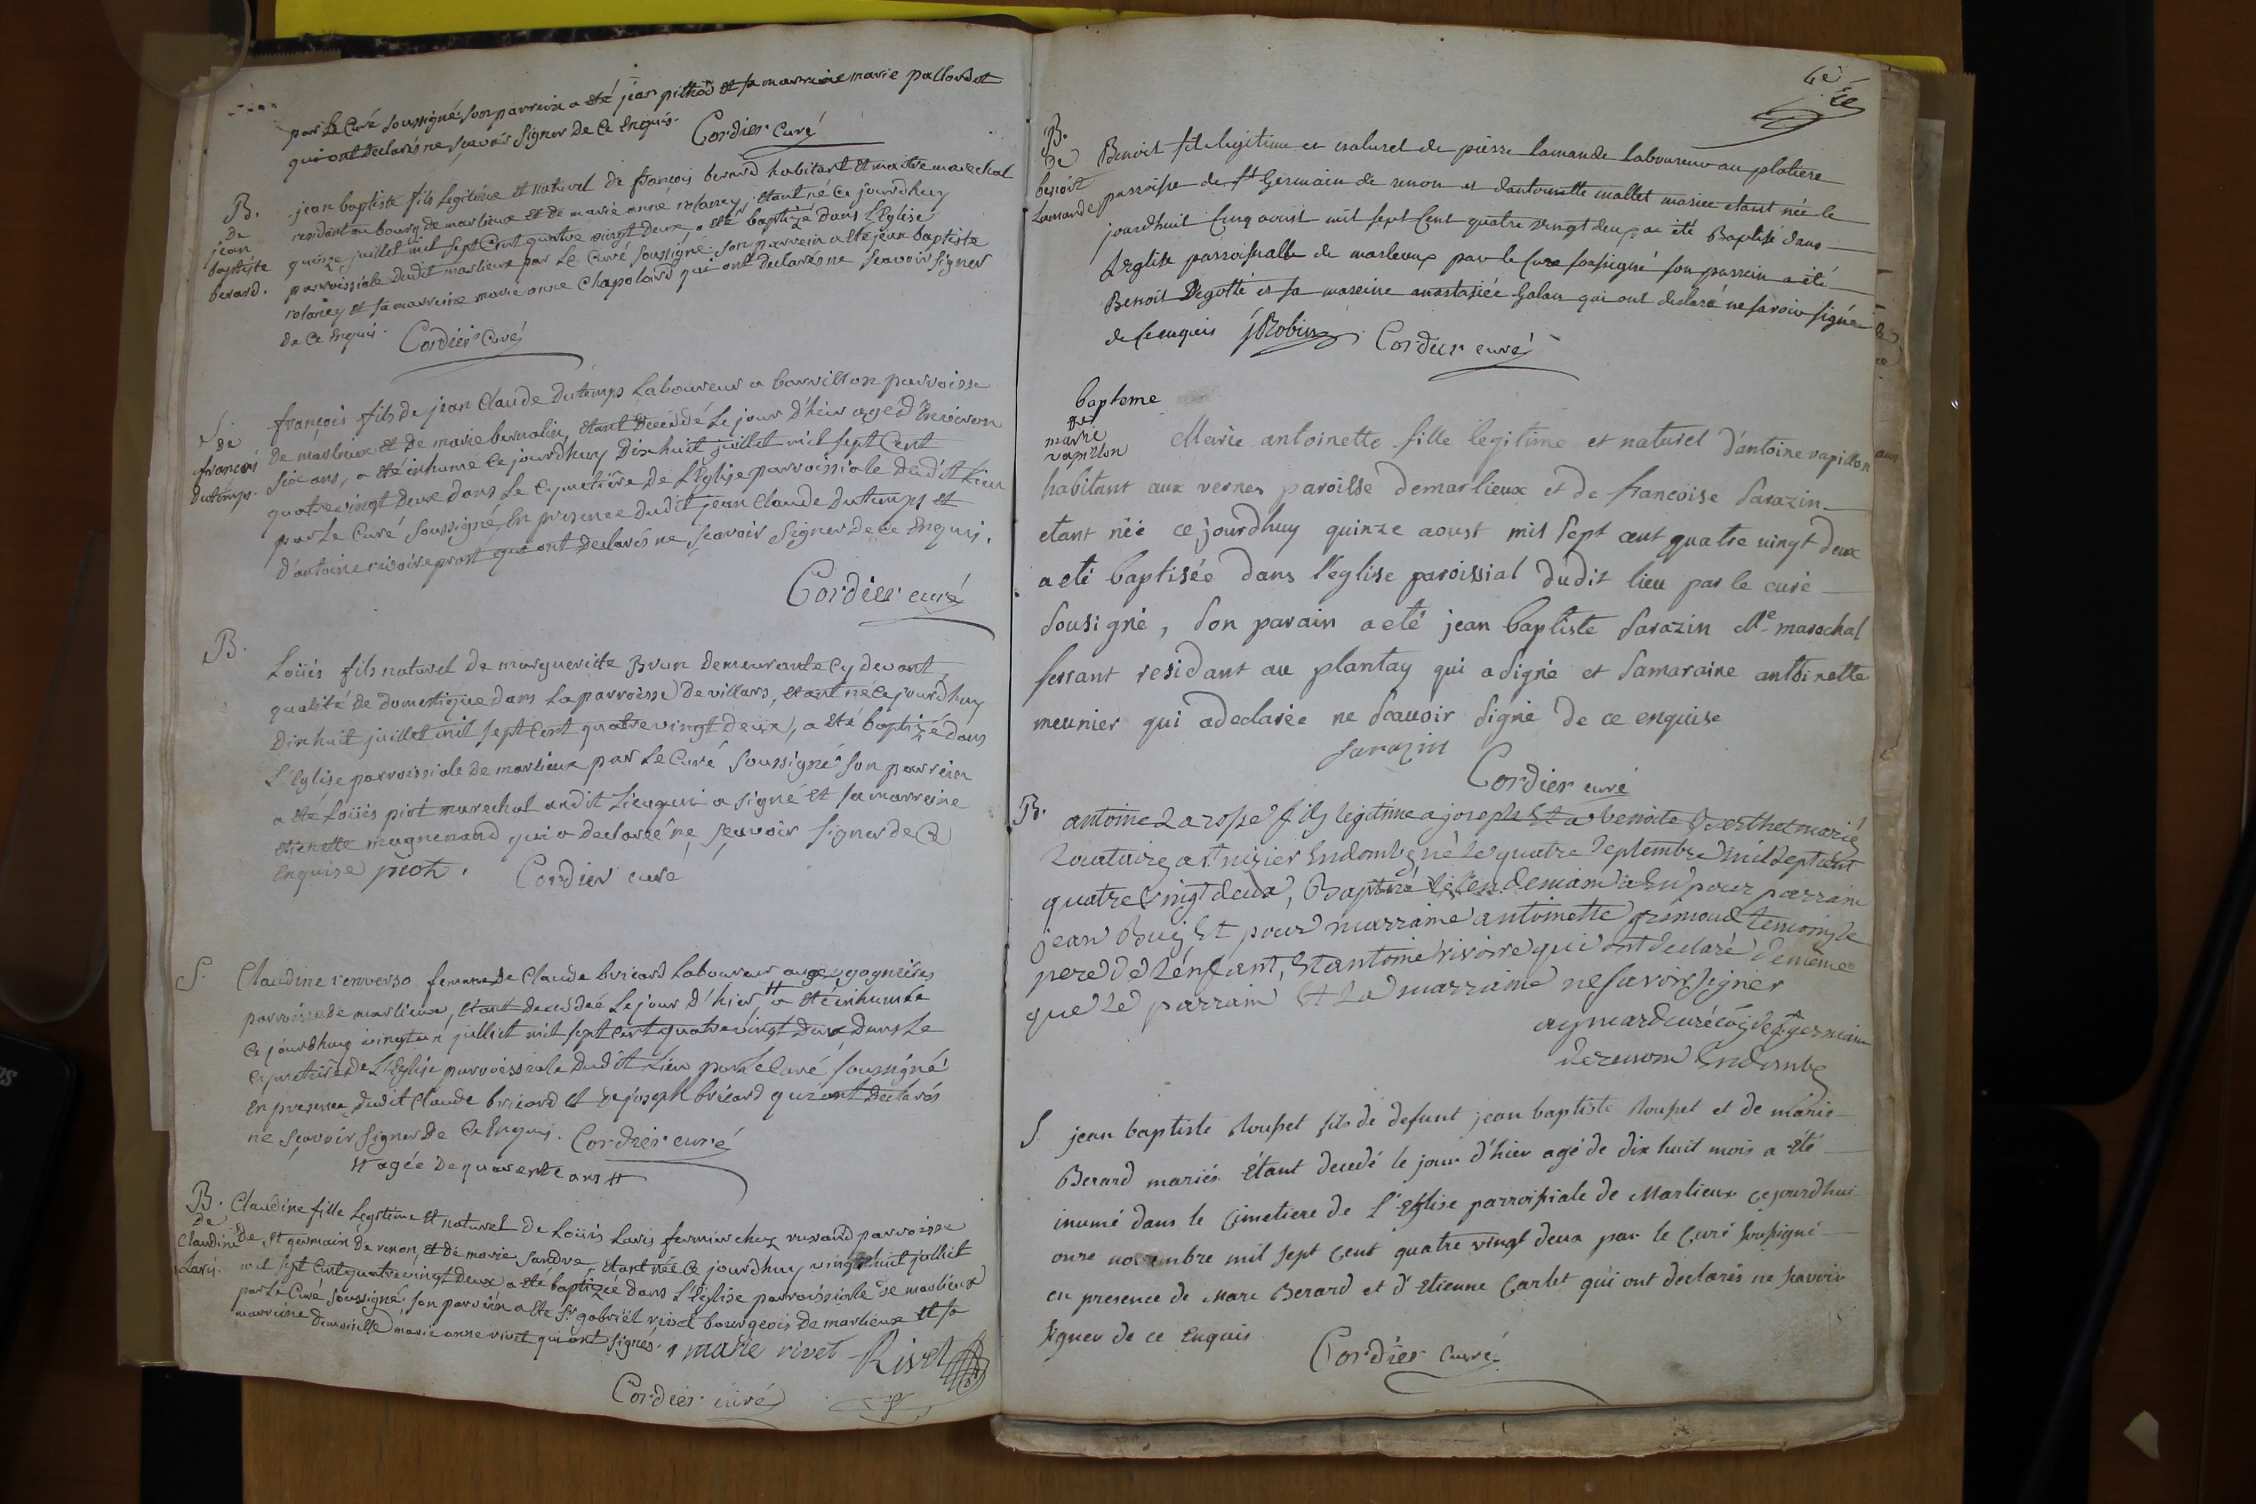 par Le Curé soussigné, son parrein a été jean pithod et sa marreine marie pallordet
qui ont declarés ne sçavoir signer De Ce Enquis. Cordier Curé
B.
De
jean
baptiste
berard.
jean baptiste fils Legitime et naturel de françois berard habitant et maitre marechal
residant au bourg de marlieux et de marie anne rolancy, étant né Ce jourdhuy
quinze juillet mil sept Cent quatre vingt Deux, a été baptizé dans L'Eglise
parroissiale dudit marlieux par Le Curé soussigné. son parrein a été jean baptiste
rolancy et sa marreine marie anne Chapolard qui ont declarés ne sçavoir signer
de Ce Enquis. Cordier Curé
S.
de
françois
dutemps.
françois fils de jean Claude Dutemps Laboureur a barvillon parroisse
De marlieux et de marie bernalin, étant Decedé Le jour D'hier agé D'Environ
six ans, a été inhumé Ce jourdhuy Dix huit juillet mil sept Cent
quatre vingt Deux dans Le Cymetiere de L'Eglise parroissiale Dudit Lieu
par Le Curé soussigné, En presence dudit jean Claude Dutemps et
D'antoine rivoire qui ont Declarés ne sçavoir signer De Ce Enquis.
Cordier curé
B.
Loüis fils naturel de margueritte Brun demeurante Cy devant
qualité de domestique dans La parroisse De villars, étant né Ce jourdhuy
Dix huit juillet mil sept Cent quatre vingt Deux, a été baptizé dans
L'Eglise parroissiale de marlieux par Le Curé soussigné. son parrein
a été Loüis piot marechal audit Lieu qui a signé et sa marreine
etienette magnenand qui a declaréé ne sçavoir signer de Ce
Enquise piot. Cordier curé
S.
Claudine renverso femme De Claude bricard Laboureur aux gagneires
parroisse de marlieux, étant decedeé Le jour D'hier # a été inhumée
Ce jourdhuy vingt un juillet mil sept Cent quatre vingt Deux Dans Le
Cymetiere de L'Eglise parroissiale Dudit Lieu par Le Curé soussigné
En presence dudit Claude bricard et de joseph bricard qui ont Declarés
ne sçavoir signer De Ce Enquis. Cordier curé
# agée De quarente ans #
B.
De
Claudine
Laris.
Claudine fille Legitime et naturel de Loüis Laris fermier chez ruvard parroisse
De St germain de renon, et de marie sandre, étant née Ce jourdhuy vingt huit juillet
mil sept Cent quatre vingt Deux a été baptizée dans L'Eglise parroissiale de marlieux
par Le Curé soussigné, son parrein a été Sr gabriël rivet bourgeois de marlieux et sa
marreine demoiselle marie anne rivet qui ont signés. marie rivet Rivet
Cordier curé
6e
B.
De
benoit
Lamande
Benoit fils legitime et naturel de pierre lamande laboureur au platiere
parroisse de St Germain de renon et dantoinette mallet mariee etant née le
jourdhuit Cinq aoust mil sept Cent quatre vingt deux a été Baptisé dans
Leglise parroissialle de marlieux par le Cure soussigné son parrein a été
Benoit Degotté et sa mareine anastasiéé Galan qui ont declaré ne savoir signé
de Ce enquis jRobin Cordier curé
bapteme
de
marie
vapillon
Marie antoinette fille legitime et naturel d'antoine vapillon
habitant aux vernes paroisse demarlieux et de francoise sarazin
etant néé ce jourdhuy quinze aoust mil sept cent quatre vingt deux
a eté baptisée dans l'eglise paroissial dudit lieu par le curé
sousigné, son parain a eté jean baptiste sarazin Me marechal
ferrant residant au plantay qui asigné et samaraine antoinette
meunier qui adeclarée ne scavoir signé de ce enquise
sarazin
Cordier curé
B.
antoine Larosse fils legitime a joseph Et a benoite Berthet mariés
Locataires a St nizier Endombe né Le quatre septembre mil sept cent
quatre vingt deux, Baptizé Le Lendemain a Eu pour parrain
jean Buiz Et pour marraine antoinette grimoud temoins Le
pere de L'enfant, Et antoine rivoire qui ont declaré de même
que Le parrain Et La marraine ne savoir signer
aymard curé de St germain
de renom Endombe
S.
jean baptiste Rousset fils de defunt jean baptiste Rousset et de marie
Berard mariés étant decedé le jour d'hier agé de dix huit mois a été
inumé dans le Cimetiere de L'Eglise parroissiale de Marlieux cejourdhui
onze novembre mil sept cent quatre vingt deux par le Curé soussigné
en presence de Marc Berard et d'Etienne Carlet qui ont declarés ne savoir
signer de ce Enquis
Cordier Curé